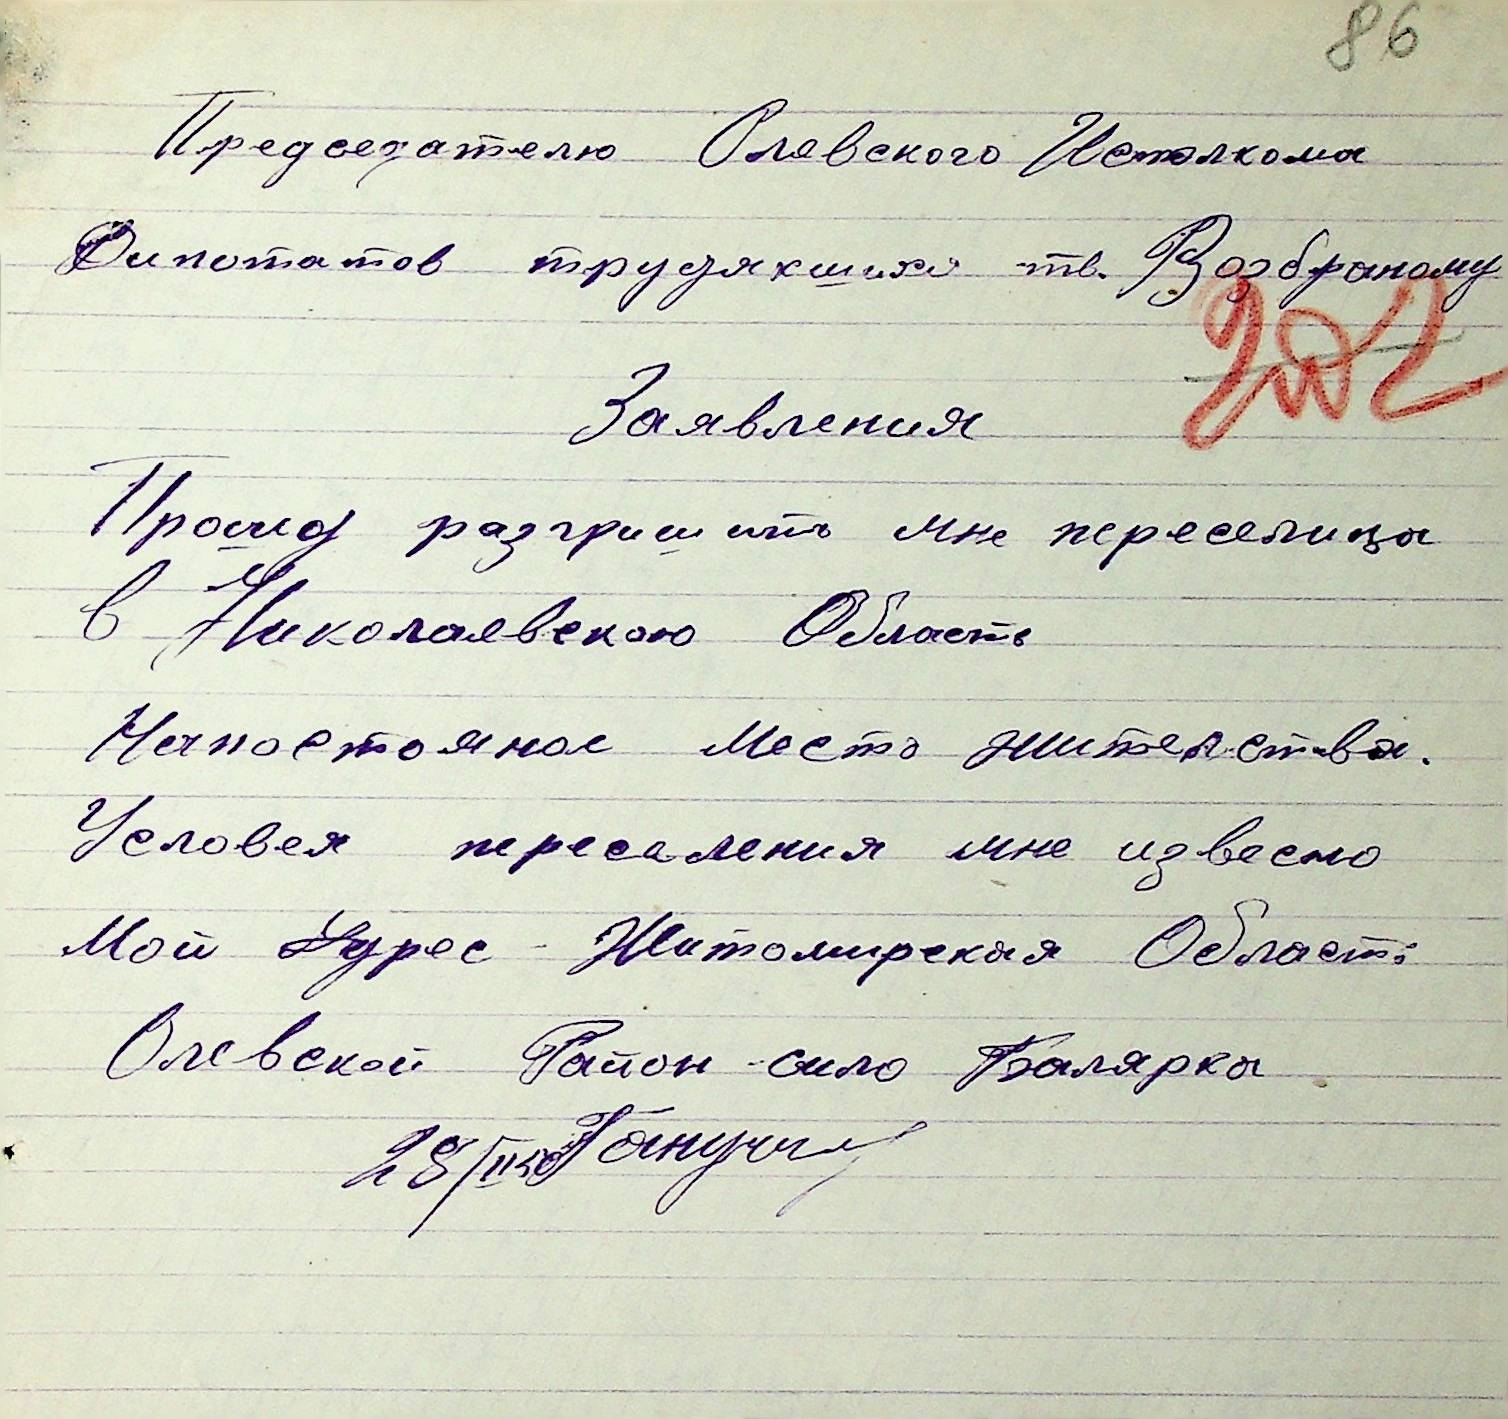 86
Председателю Олевского Исполкома
Дипотатов трудякшихся тв. Возбраному
202
Заявления
Прошу разгришить мне переселица
в Николаевскою Область
Напостоянное Место жительства.
Условея переселения мне извесно
Мой Адрес - Житомирская Область
Олевской Район - село Балярка
28/II 50